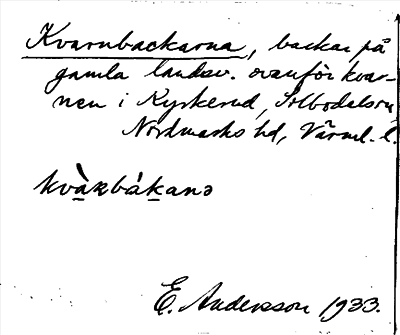 Kvarnbackarna, backar på
gamla landsv. ovanför kvar-
nen i Kyrkerud, Silbodalsn,
Nordmarks hd, Värml. l.
kvàrbákanə
E. Andersson 1933.